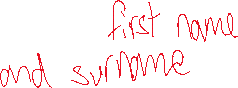 first name
and surname